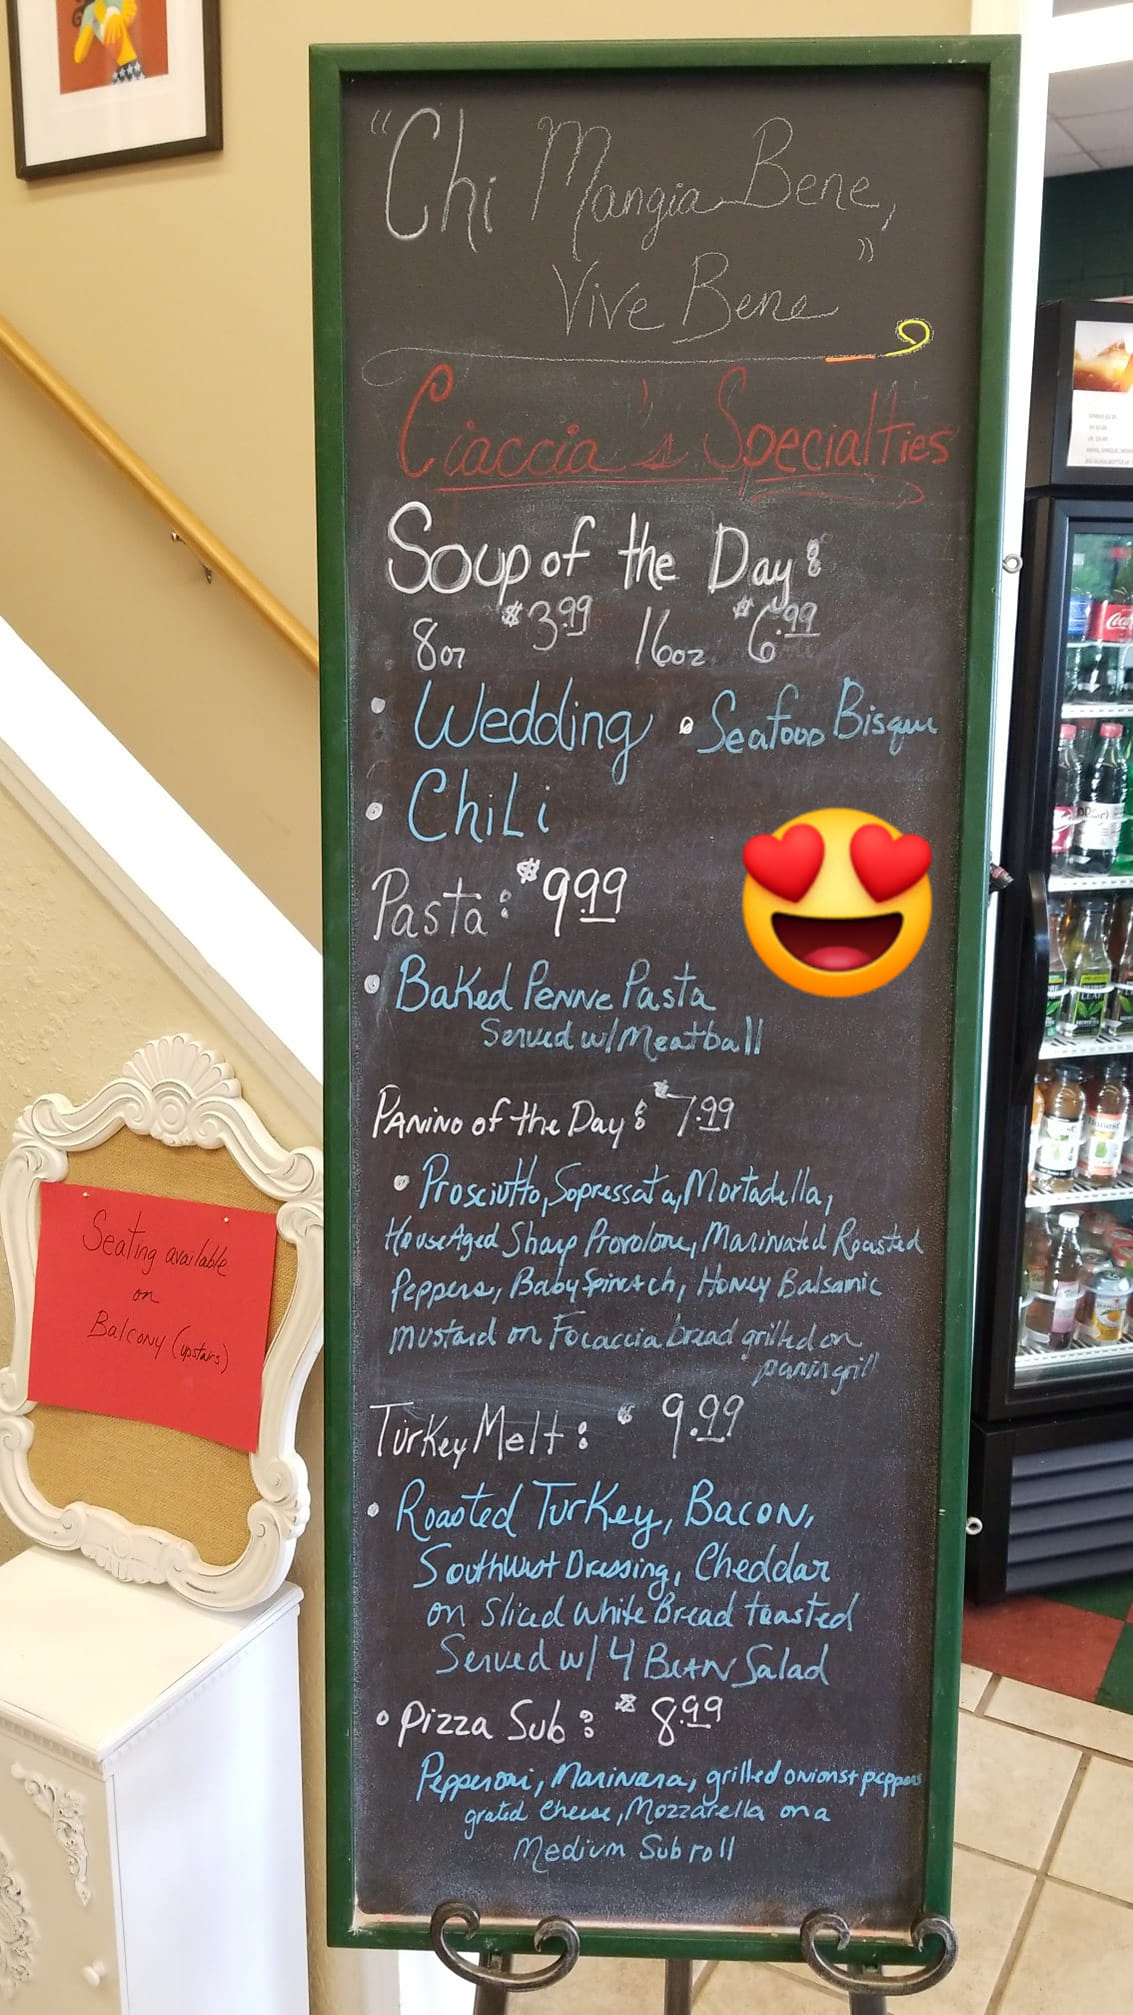 "Chi Mangia Bene,
Vive Bene"
Ciaccia's Specialties
Soup of the Day:
8oz $3.99 16oz $6.99
• Wedding • Seafood Bisque
• Chili
Pasta: $9.99
• Baked Penne Pasta
Served w/Meatball
Panino of the Day: $7.99
• Prosciutto, Sopressata, Mortadella,
House Aged Sharp Provolone, Marinated Roasted
Peppers, Baby Spinach, Honey Balsamic
Mustard on Focaccia bread grilled on
panin grill
Turkey Melt: $9.99
• Roasted Turkey, Bacon,
Southwest Dressing, Cheddar
on Sliced White Bread toasted
Served w/ 4 Bean Salad
• Pizza Sub: $8.99
Pepperoni, Marinara, grilled onions + peppers
grated cheese, Mozzarella on a
Medium Sub roll
Seating available
on
Balcony (upstairs)